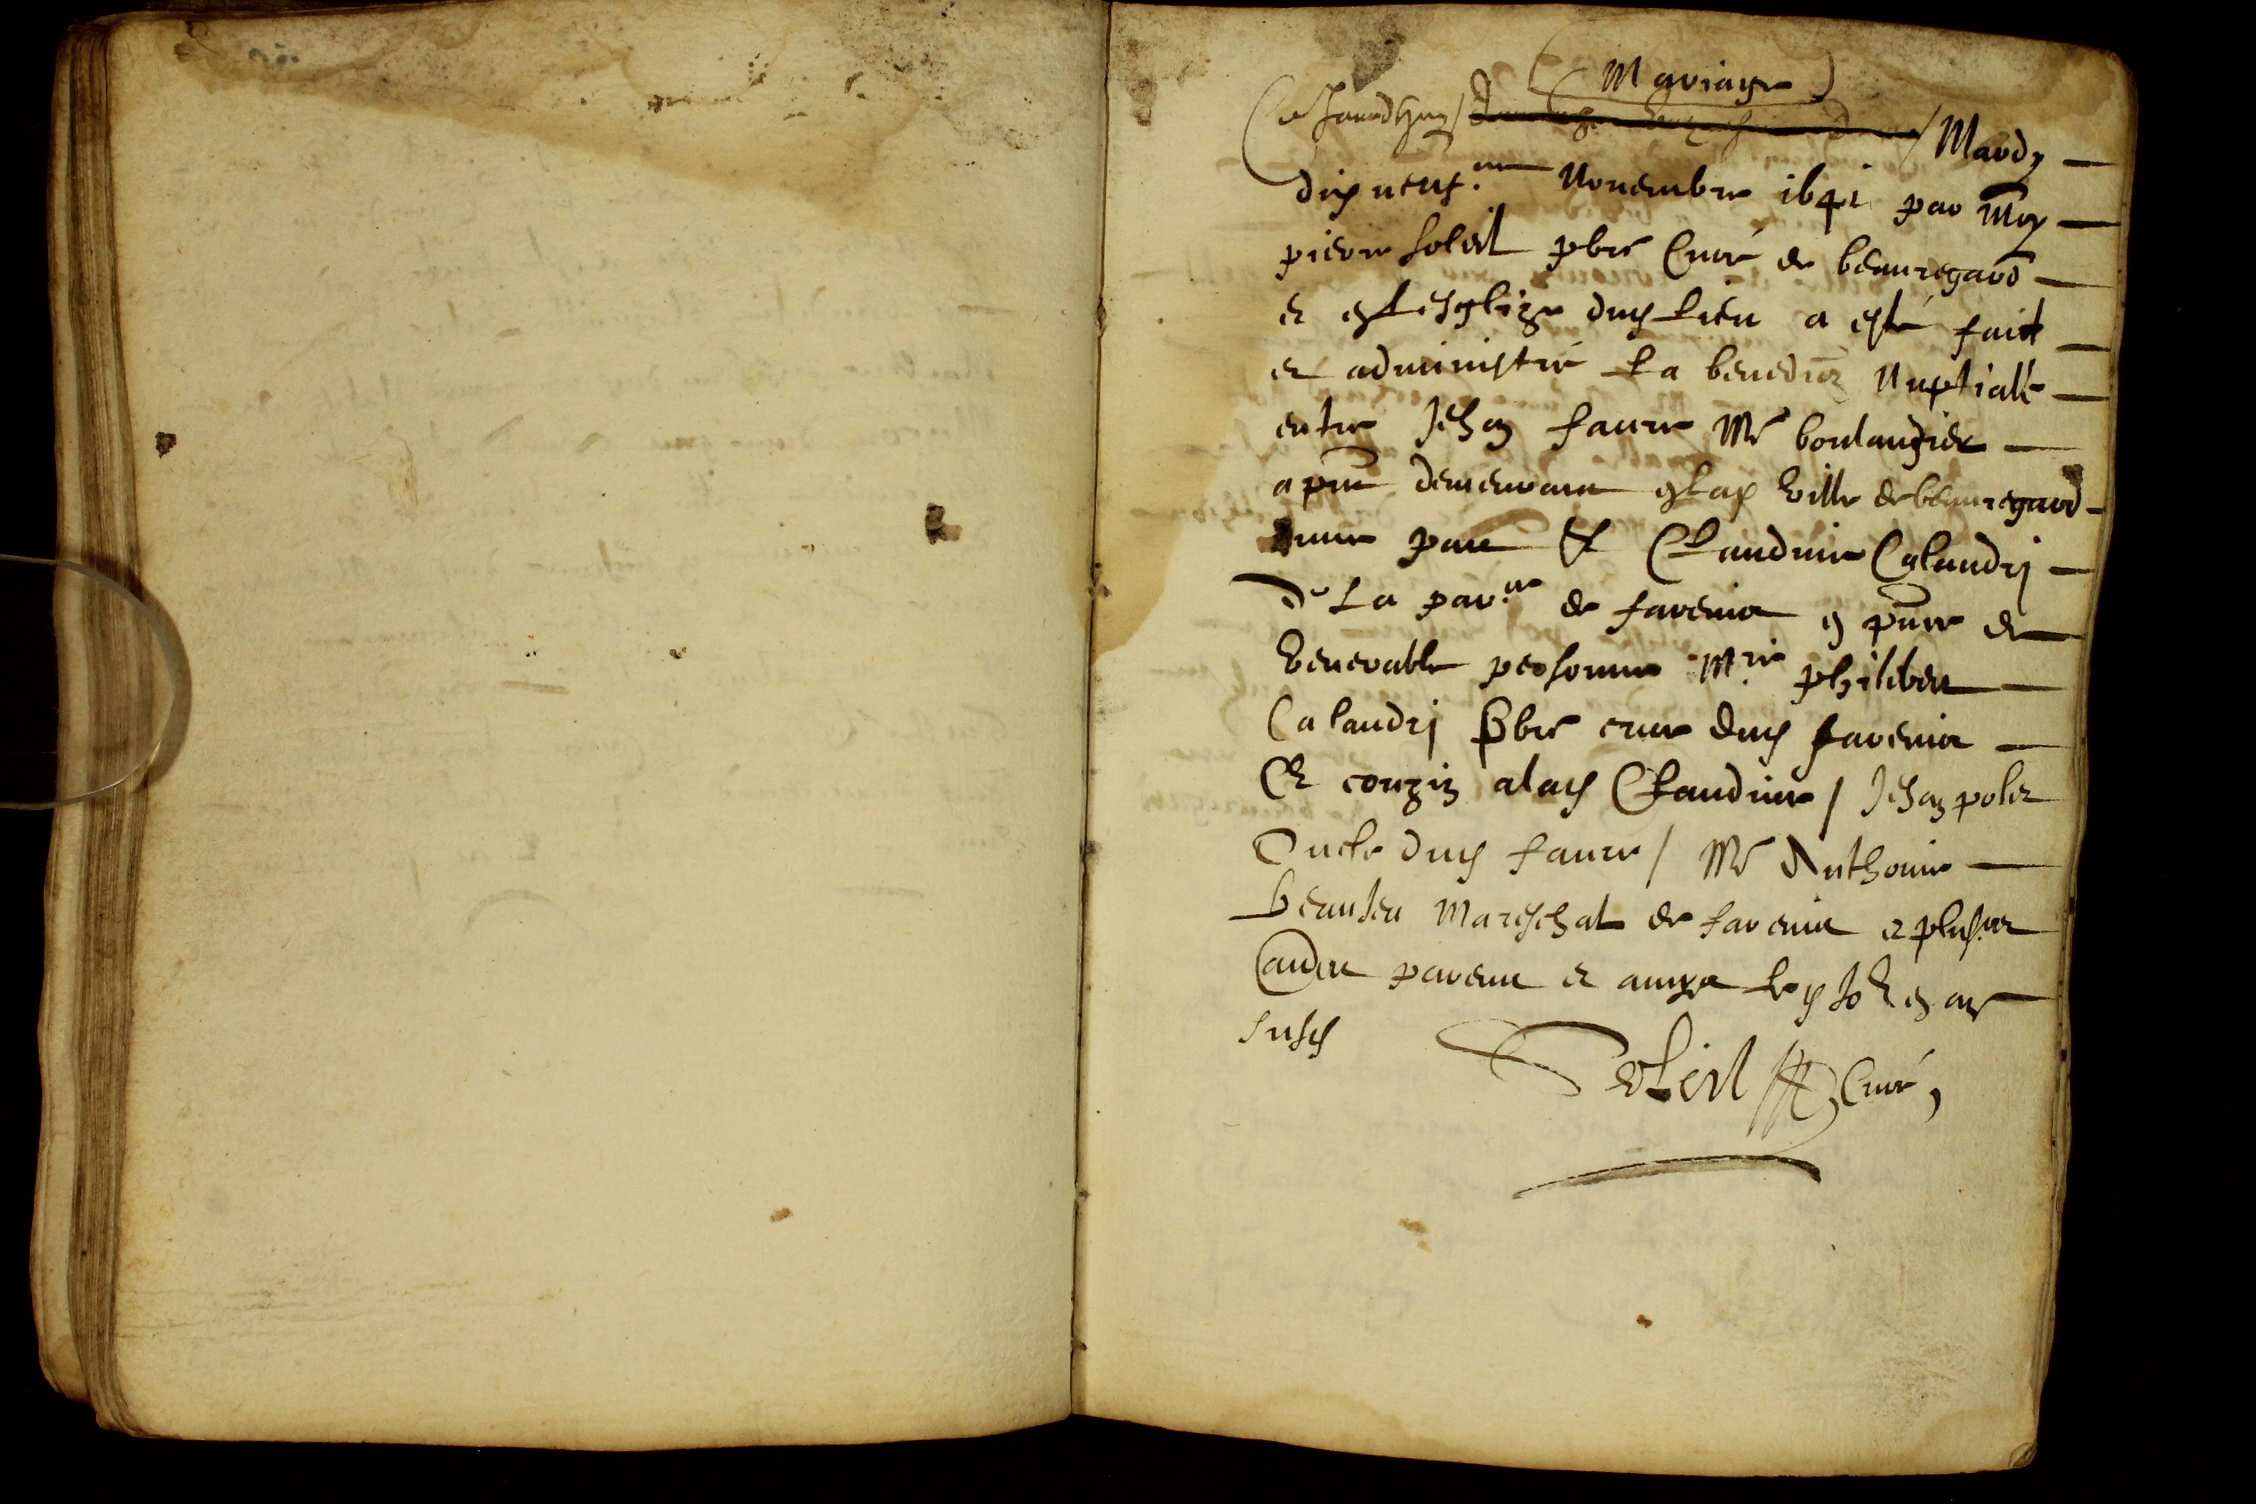 Mariage
Ce Jourdhuy / / Mardy
dix neuf.me Novembre 1641 par Moy
pierre soleil pbre Curé de beauregard
et en lesglize dud lieu a esté faict
et administré La benedion Nuptialle
entre Jehan faure Me boulangier
a pnt demeurant en lad ville de beauregard
dune part Et Claudine Calandri
De La parse de fareins en pnce de
Venerable personne Mre philibert
Calandri Pbre cure dud fareins
Et couzin a lad Claudine / Jehan polet
Oncle dud faure / Me Anthoine
beaujeu Mareschal de fareins et plusrs
autres parens et amys les jo et an
susd
Soleil Curé,